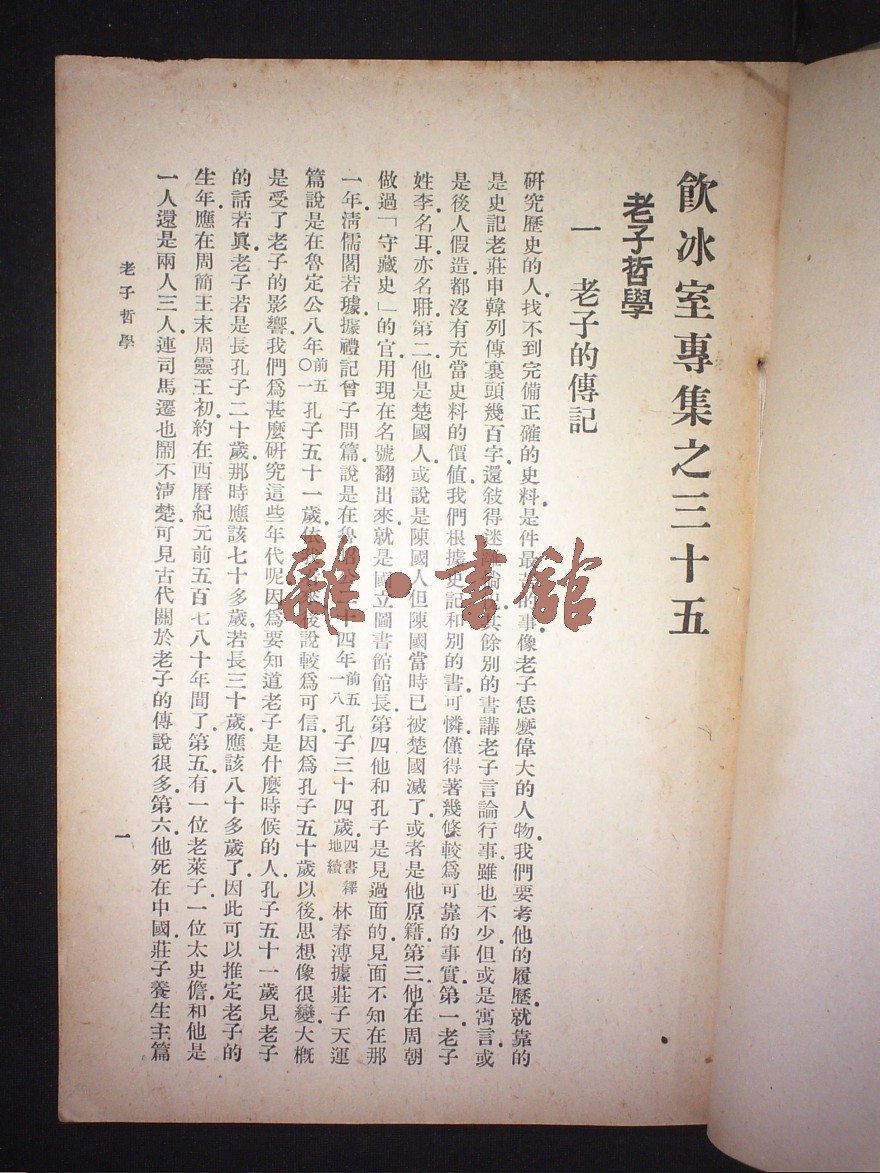 飲冰室專集之三十五
老子哲學
一 老子的傳記
研究歷史的人．找不到完備正確的史料．是件最苦的事．像老子恁麼偉大的人物．我們要考他的履歷．就靠的
是史記老莊申韓列傳裏頭幾百字．還敍得迷離 其餘別的書講老子言論行事雖也不少．但或是寓言．或
是後人假造．都沒有充當史料的價值．我們根據史記和別的書．可憐僅得著幾條較爲可靠的事實．第一．老子
姓李．名耳．亦名聃．第二．他是楚國人．或說是陳國人．但陳國當時已被楚國滅了．或者是他原籍．第三．他在周朝
做過「守藏史」的官．用現在名號翻出來．就是國立圖書館館長．第四．他和孔子是見過面的．見面不知在那
一年．清儒閻若璩．據禮記曾子問篇．說是在魯昭 二十四年前五一八孔子三十四歲．四書釋地續林春溥據莊子天運
篇說是在魯定公八年前五〇一孔子五十一歲．依 後說較爲可信．因爲孔子五十歲以後．思想像很變．大概
是受了老子的影響．我們爲甚麼研究這些年代呢．因爲要知道老子是什麼時候的人．孔子五十一歲見老子
的話若眞．老子若是長孔子二十歲．那時應該七十多歲．若長三十歲．應該八十多歲了．因此可以推定老子的
生年．應在周簡王末周靈王初．約在西曆紀元前五百七八十年間了．第五．有一位老萊子．一位太史儋．和他是
一人還是兩人三人．連司馬遷也鬧不清楚．可見古代關於老子的傳說很多．第六．他死在中國．莊子養生主篇
老子哲學
一
雜·書館